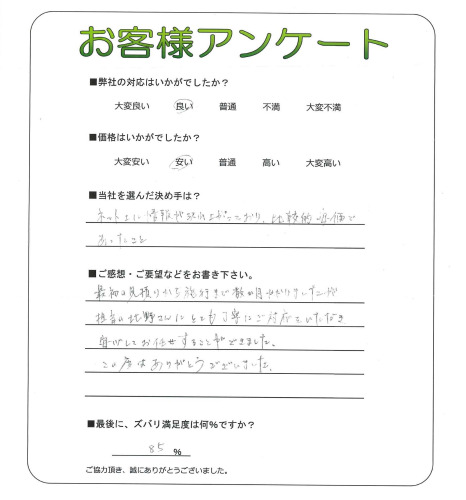 お客様アンケート
■弊社の対応はいかがでしたか？
大変良い 良い 普通 不満 大変不満
■価格はいかがでしたか？
大変安い 安い 普通 高い 大変高い
■当社を選んだ決め手は？
ネット上に情報が 上がっており、比較的安価で
あったこと
■ご感想・ご要望などをお書き下さい。
最初の見積りから施行まで数か月かかりましたが
担当の北野さんにとても丁寧にご対応をいただき
安心してお任せすることができました。
この度はありがとうございました。
■最後に、ズバリ満足度は何%ですか？
85 %
ご協力頂き、誠にありがとうございました。